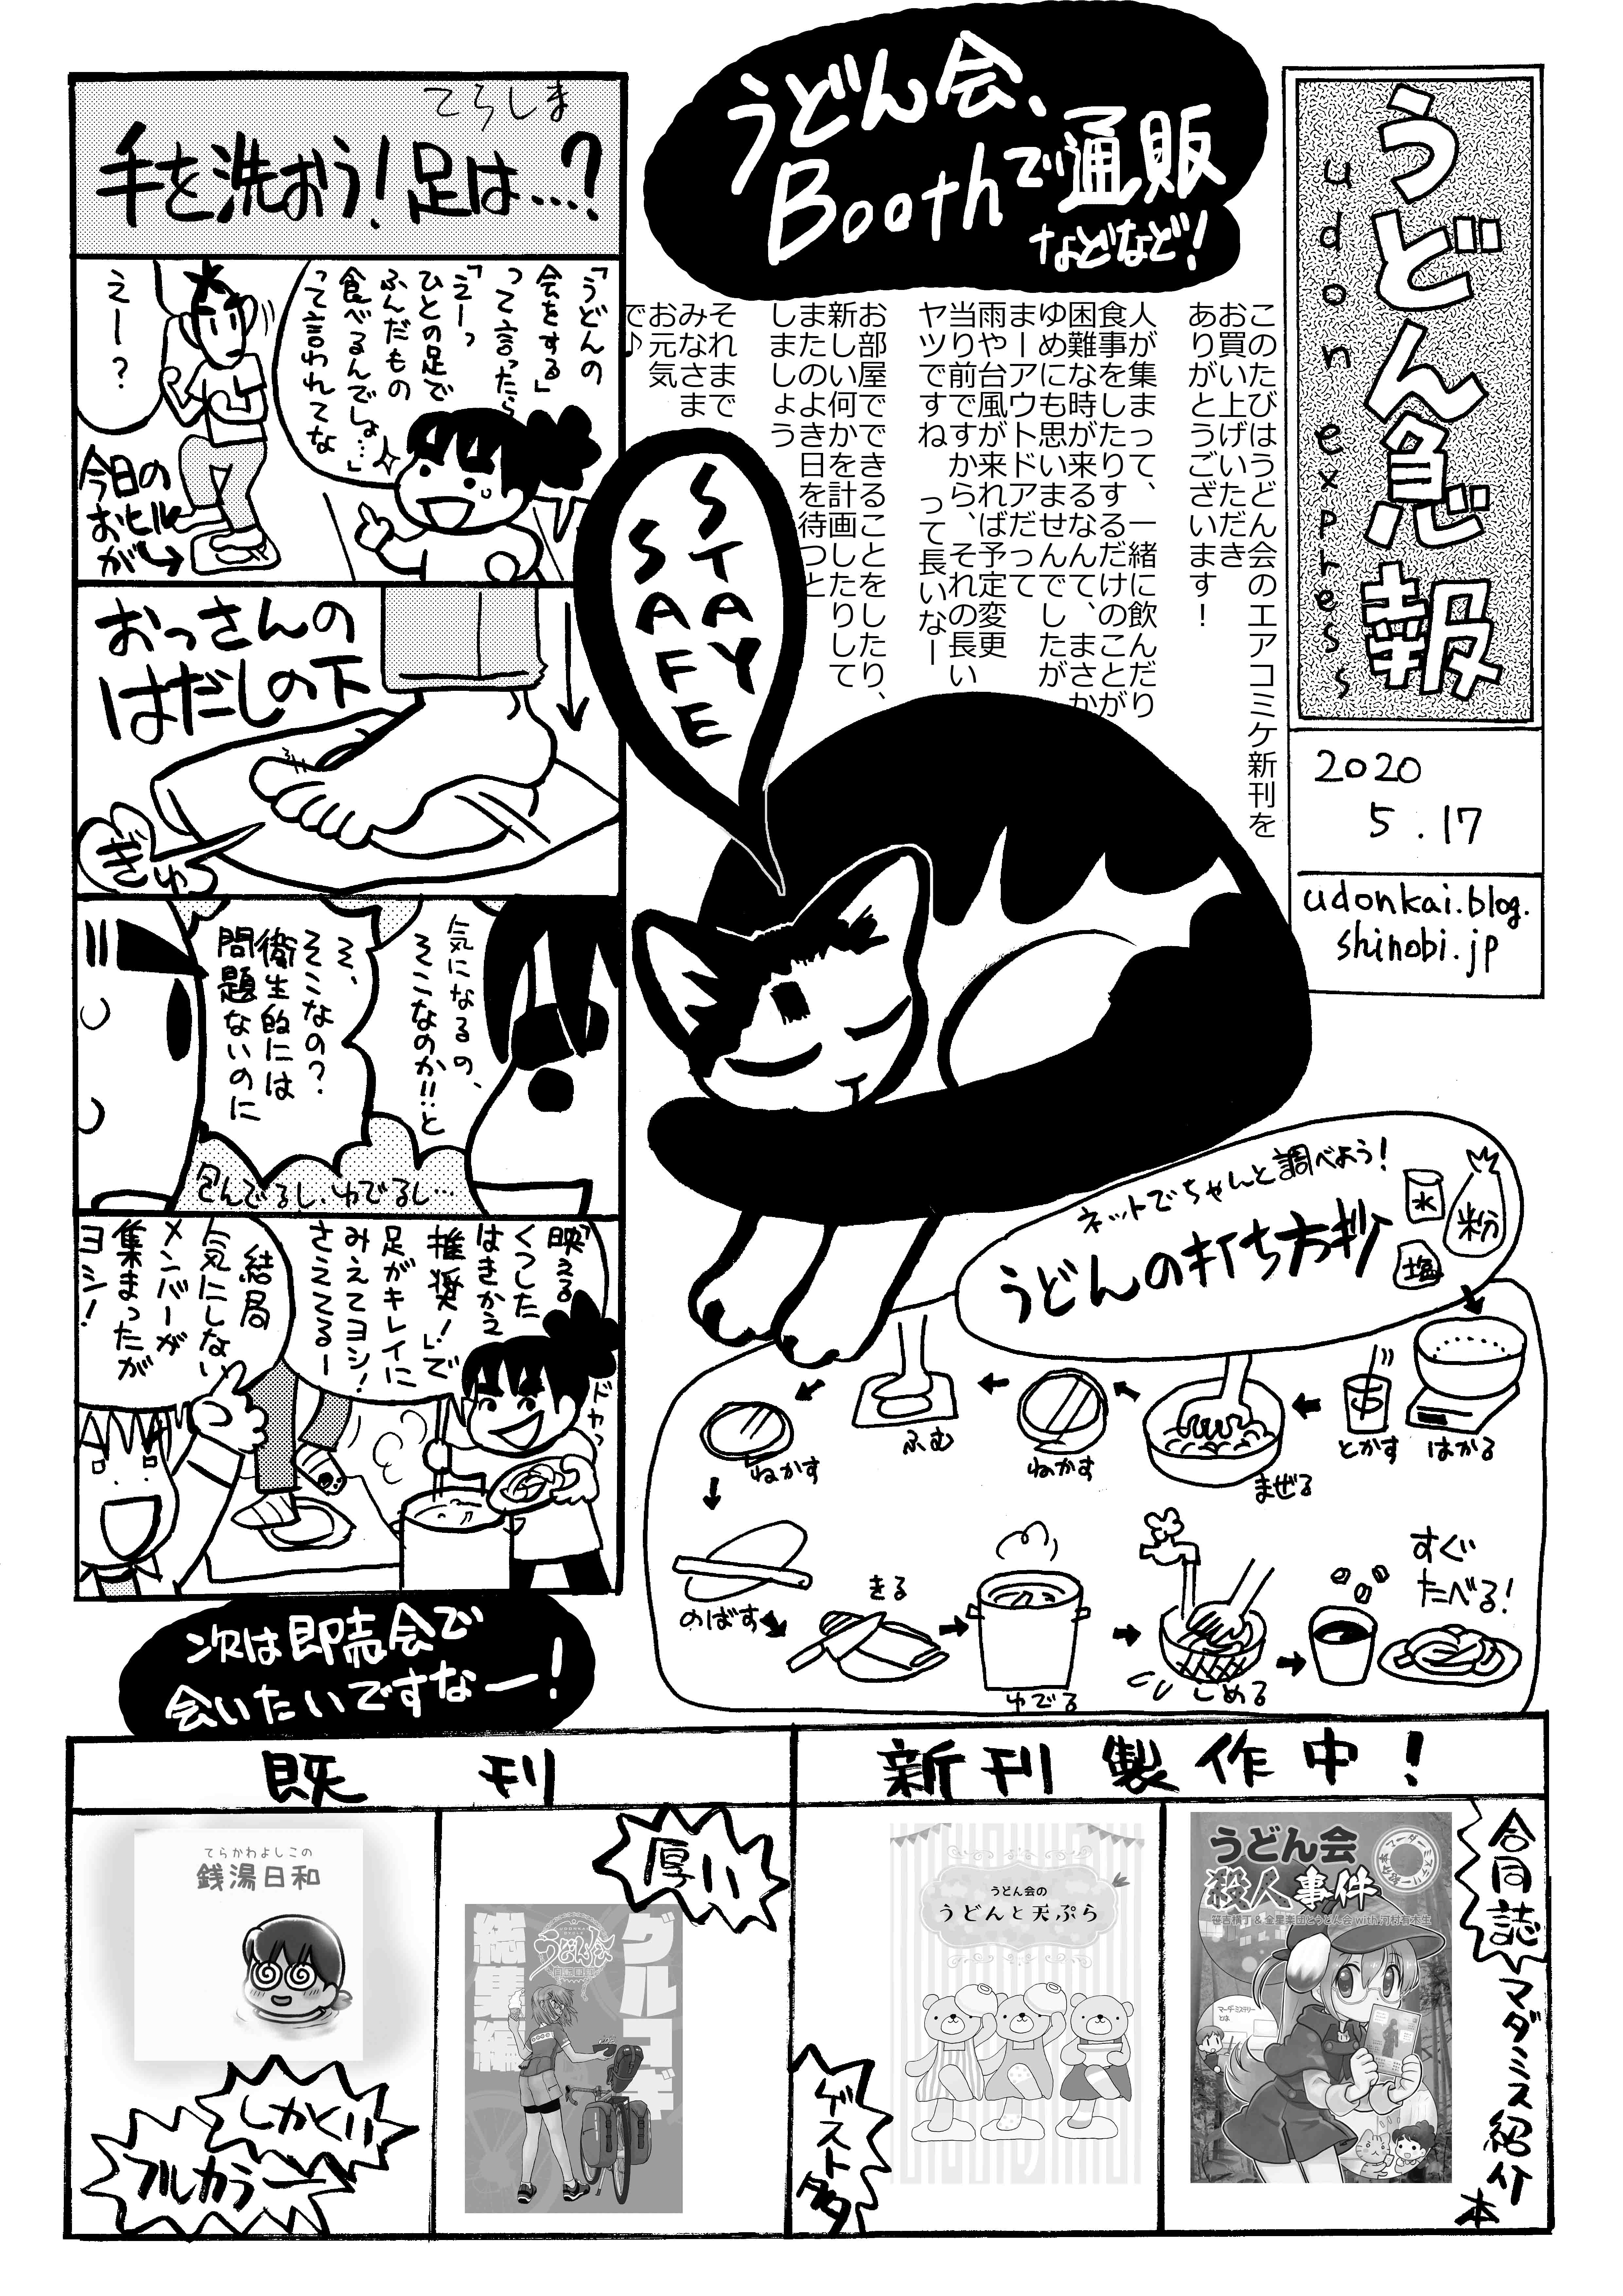 うどん急報
udon express
2020
5.17
udonkai.blog.
shinobi.jp
うどん会、
Boothで通販
などなど!
このたびはうどん会のエアコミケ新刊を
お買い上げいただき
ありがとうございます!
人が集まって、一緒に飲んだり
食事をしたりするだけのことが
困難な時が来るなんて、まさか
ゆめにも思いませんでしたが
まーアウトドアだって
雨や台風が来れば予定変更
当り前ですから、それの長い
ヤツですね って長いなー
お部屋でできることをしたり、
新しい何かを計画したりして
またのよき日を待つと
しましょう
それまで
みなさま
お元気
で♪
STAY
SAFE
てらしま
手を洗おう!足は…?
「うどんの
会をする」
って言ったら
「えーっ
ひとの足で
ふんだもの
食べるんでしょ…」
って言われてな
えー?
今日の
おヒル
が→
おっさんの
はだしの下
ぎゅう
気になるの、
そこなのか!!と
そ、
そこなの?
衛生的には
問題ないのに
包んでるし、ゆでるし…
「映える
くつした
はきかえ
推奨!」で
足がキレイに
みえてヨシ!
さえてるー
ドヤっ
結局
気にしない
メンバーが
集まったが
ヨシ!
次は即売会で
会いたいですなー!
ネットでちゃんと調べよう!
うどんの打ち方抄
水
粉
塩
はかる
とかす
まぜる
ねかす
ふむ
ねかす
のばす
きる
ゆでる
しめる
すぐ
たべる!
新刊製作中!
合同誌
マダミス紹介本
うどん会
殺人事件
マーダーミステリー紹介本
マーダーミステリー
とは
うどん会の
うどんと天ぷら
ゲスト
既刊
厚い
グルコギ
総集編
うどん会
てらかわよしこの
銭湯日和
しかくい
フルカラー